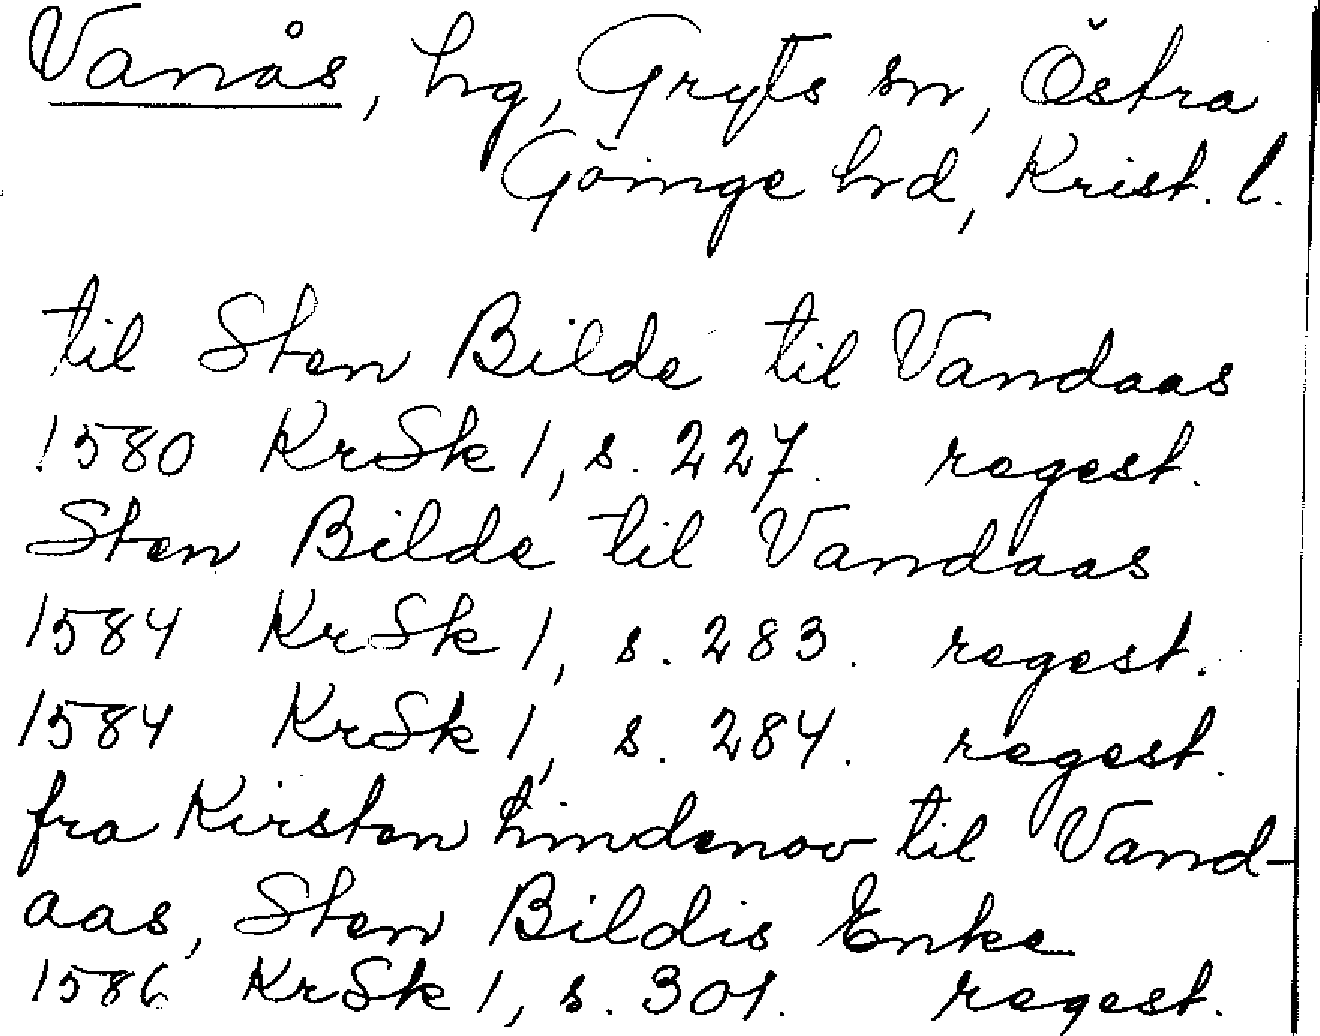 Vanås, hg, Gryts sn, Östra
Göinge hrd, Krist. l.
til Sten Bilde til Vandaas
1580 KrSk 1, s. 227. regest.
Sten Bilde til Vandaas
1584 KrSk 1, s. 283. regest.
1584 KrSk 1, s. 284. regest.
fra Kirsten Lindenov til Vand-
aas, Sten Bildis Enke
1586 KrSk 1, s. 301. regest.